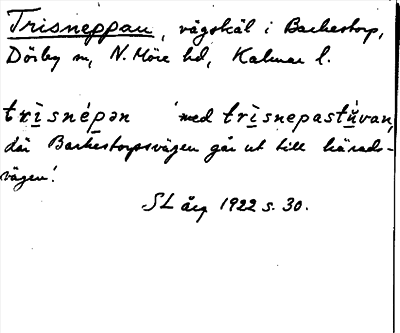 Trisneppan, vägskäl i Barkestorp,
Dörby sn, N. Möre hd, Kalmar l.
trìsnépən ' med trìsnepastúvan,
där Barkestorpsvägen går ut till härads-
vägen'.
SL årg 1922 s. 30.